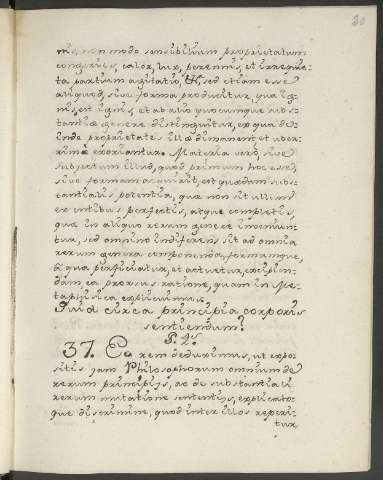 30
nis, non modo sensibilium proprietatum
congeries, calor, lux, perennis, et irrequie-
ta partium agitatio, &, sed etiam esse
aliquod, sive forma producitur, qua ig-
nis, est ignis, et ab alio quocumque subs-
tantiæ genere distinguitur, ex qua de-
inde proprietates illæ dimanent et uber-
rimæ exoriantur. Materia verò, sive
subjectum illud, quod primum hoc esse,
sive formam acquirit, est quædam subs-
tantialis potentia, quæ non sit ullum
ex entibus perfectis, atque completis,
quæ in aliquo rerum genere inveniun-
tur, sed omnino indiferens sit ad omnia
rerum genera componenda, formamque,
qua perficiatur, et actuetur, excipien-
dam, ea prorsus ratione, quam in Me-
taphisica explicuimus.
Quid circa principia corporis
sentiendum?
§. 2.
37. Eo rem deduximus, ut expo-
sitis jam Philosophorum omnium de
rerum principijs, ac de substantiali
rerum mutatione sententijs, explicato-
que discrimine, quod inter illos reperi-
tur